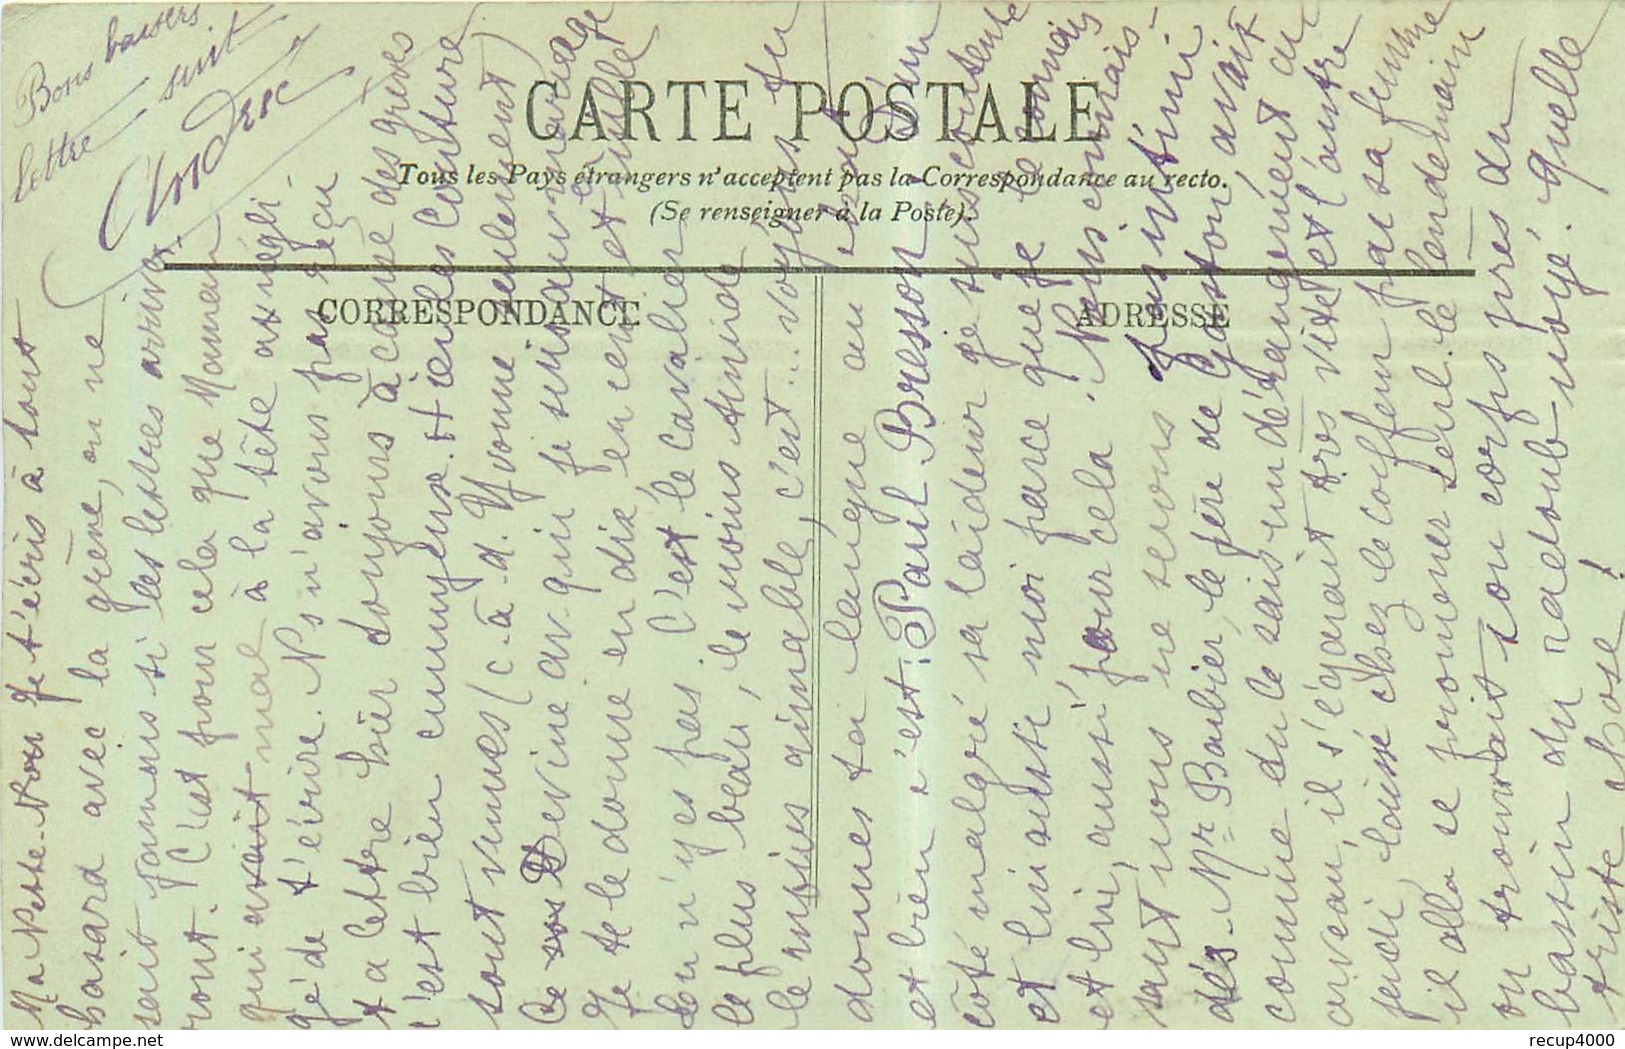 CARTE POSTALE
Tous les Pays étrangers n'acceptent pas la Correspondance au recto.
(Se renseigner à la Poste).
CORRESPONDANCE
ADRESSE
Ma Je t'écris à tout
hasard avec la grève, on ne
sait jamais si les lettres arrive-
ront. C'est pour cela que Maman
qui avait mal à la tête a négli-
gé de t'écrire. Ns n'avons pas reçu
ta lettre hier toujours à cause des grèves
c'est bien ennuyeux. et seules
sont venues (c.-à-d. Yvonne seulement)
Ce Devine av. qui je suis au mariage
Je te le donne en dix, en cent et mille
tu n'y es pas. C'est le cavalier
le plus beau, le moins timide
le moins aimable, c'est... voyons tu
donnes ta langue au
et bien c'est: Paul Bresson
côté malgré sa laideur je suis contente
et lui aussi moi parce que je le connais
et lui, aussi pour cela. Nous connais-
sant nous ne serons pas intimi-
dés. Mr Barbier, le père de Gaston, avait
comme tu le sais un dérangement au
cerveau, il s'égarait très vite et l'autre
jeudi, laissé chez le coiffeur par sa femme
il alla se promener seul. le lendemain
on trouvait son corps près du
bassin du radoub noyé. quelle
triste chose!
Bons baisers
lettre suit
recup4000